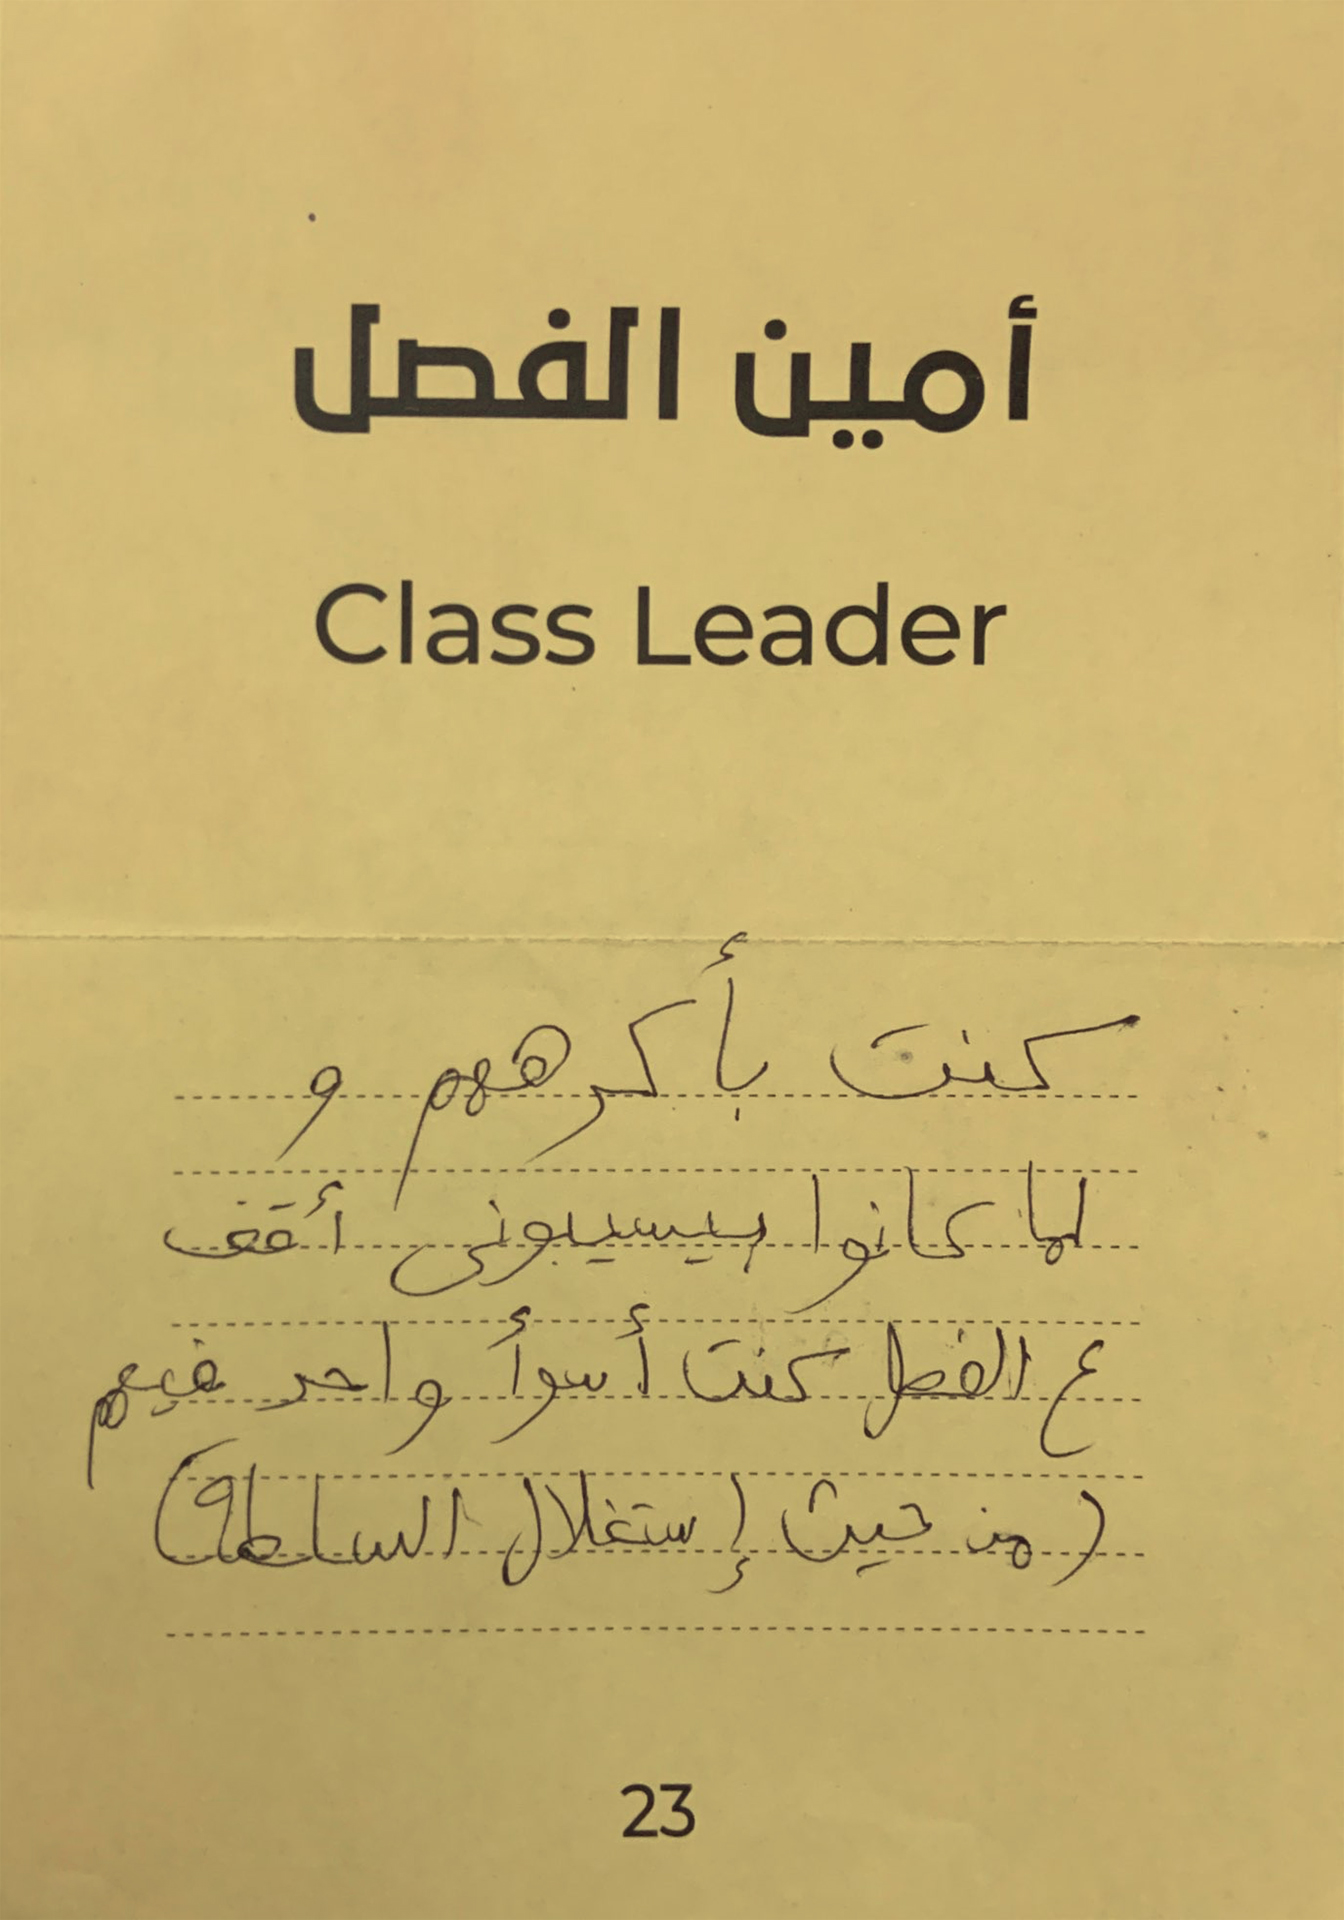 أمين الفصل
Class Leader
كنت بأكرههم و
لما كانوا بيسيبونى أقف
ع الفصل كنت أسوأ واحد فيهم
(من حيث إستغلال السلطة)
23